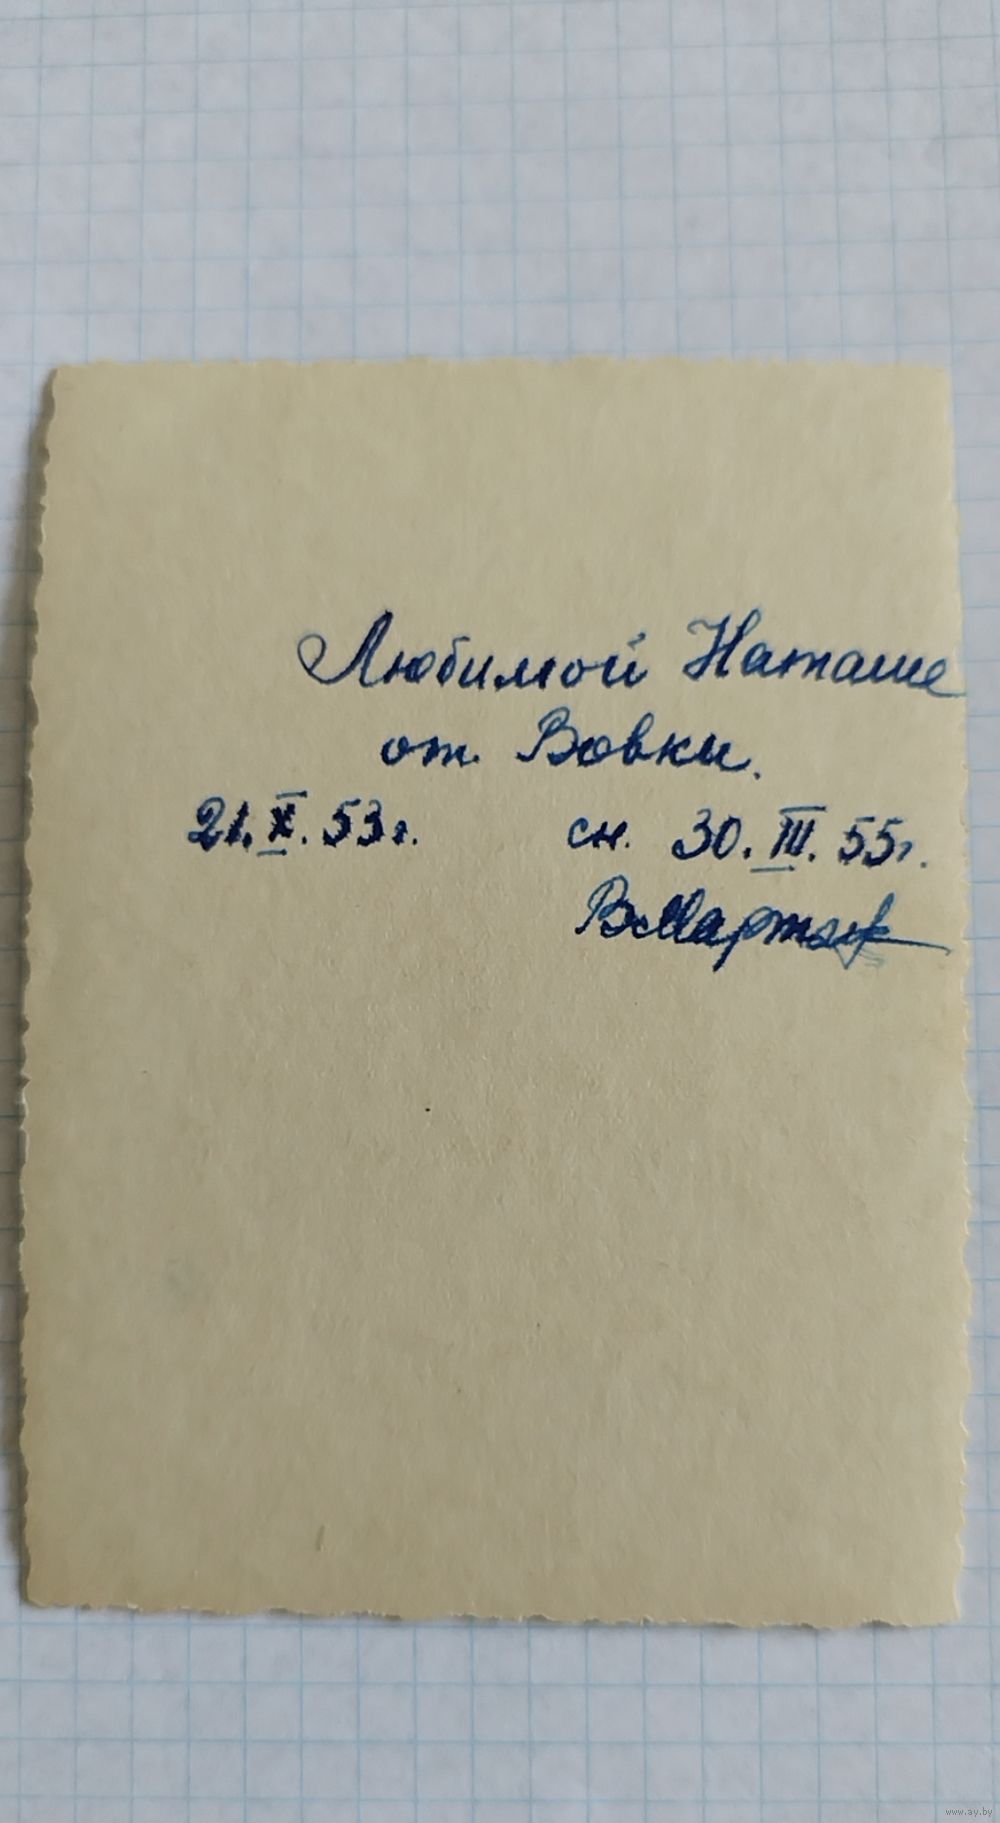 Любимой Наташе
от Вовки.
21.X.53г. сн. 30.III.55г.
www.ay.by